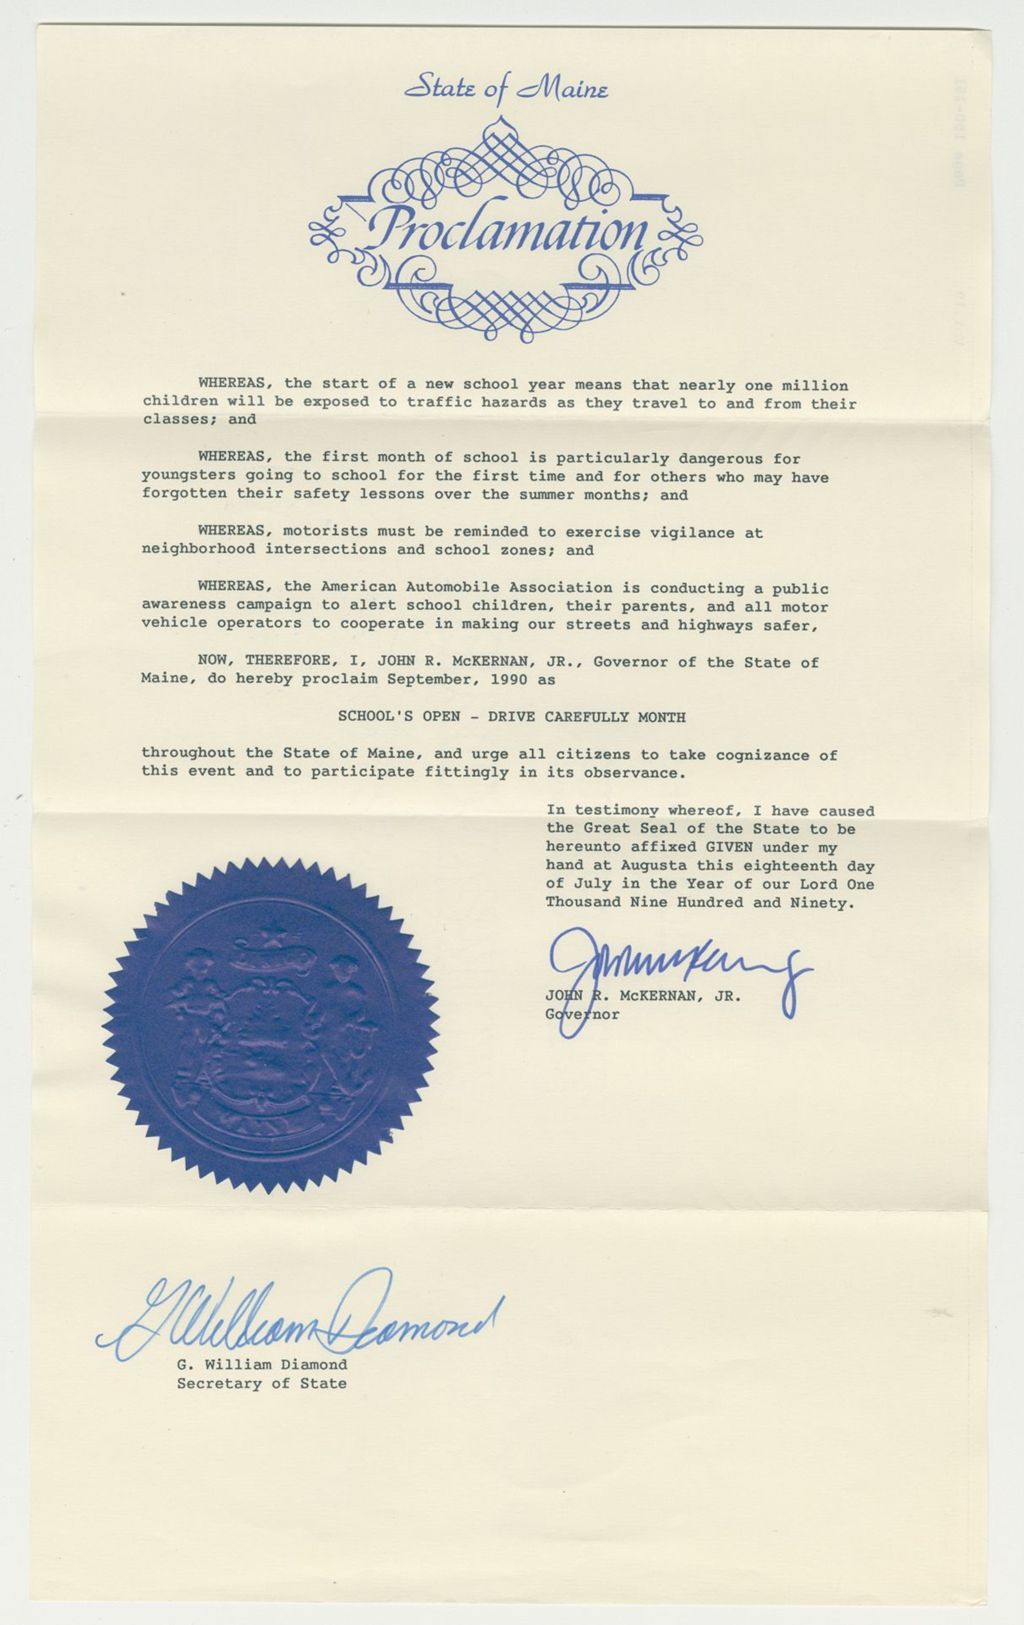 State of Maine
Proclamation
WHEREAS, the start of a new school year means that nearly one million
children will be exposed to traffic hazards as they travel to and from their
classes; and
WHEREAS, the first month of school is particularly dangerous for
youngsters going to school for the first time and for others who may have
forgotten their safety lessons over the summer months; and
WHEREAS, motorists must be reminded to exercise vigilance at
neighborhood intersections and school zones; and
WHEREAS, the American Automobile Association is conducting a public
awareness campaign to alert school children, their parents, and all motor
vehicle operators to cooperate in making our streets and highways safer,
NOW, THEREFORE, I, JOHN R. McKERNAN, JR., Governor of the State of
Maine, do hereby proclaim September, 1990 as
SCHOOL'S OPEN - DRIVE CAREFULLY MONTH
throughout the State of Maine, and urge all citizens to take cognizance of
this event and to participate fittingly in its observance.
In testimony whereof, I have caused
the Great Seal of the State to be
hereunto affixed GIVEN under my
hand at Augusta this eighteenth day
of July in the Year of our Lord One
Thousand Nine Hundred and Ninety.
JOHN R. McKERNAN, JR.
Governor
G William Diamond
G. William Diamond
Secretary of State